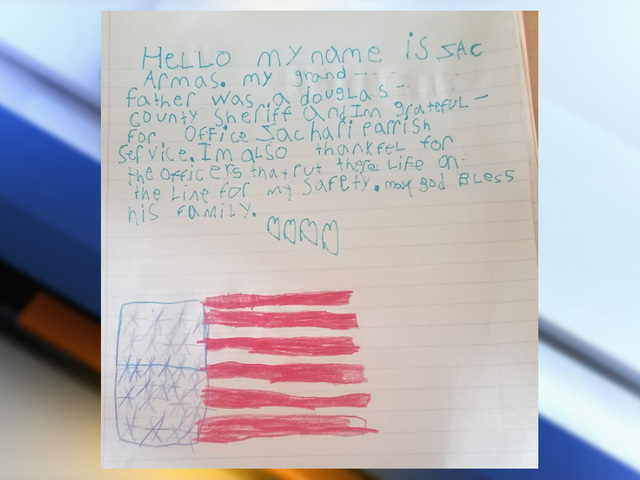 HeLLO my name is JAC
Armas. my grand --
father was a douglas --
county sheriff and Im grateful -
for Office Jachari parrish
service. Im also thankfel for
the officers that put there Life on
the Line for my safety. may god BLess
his family.